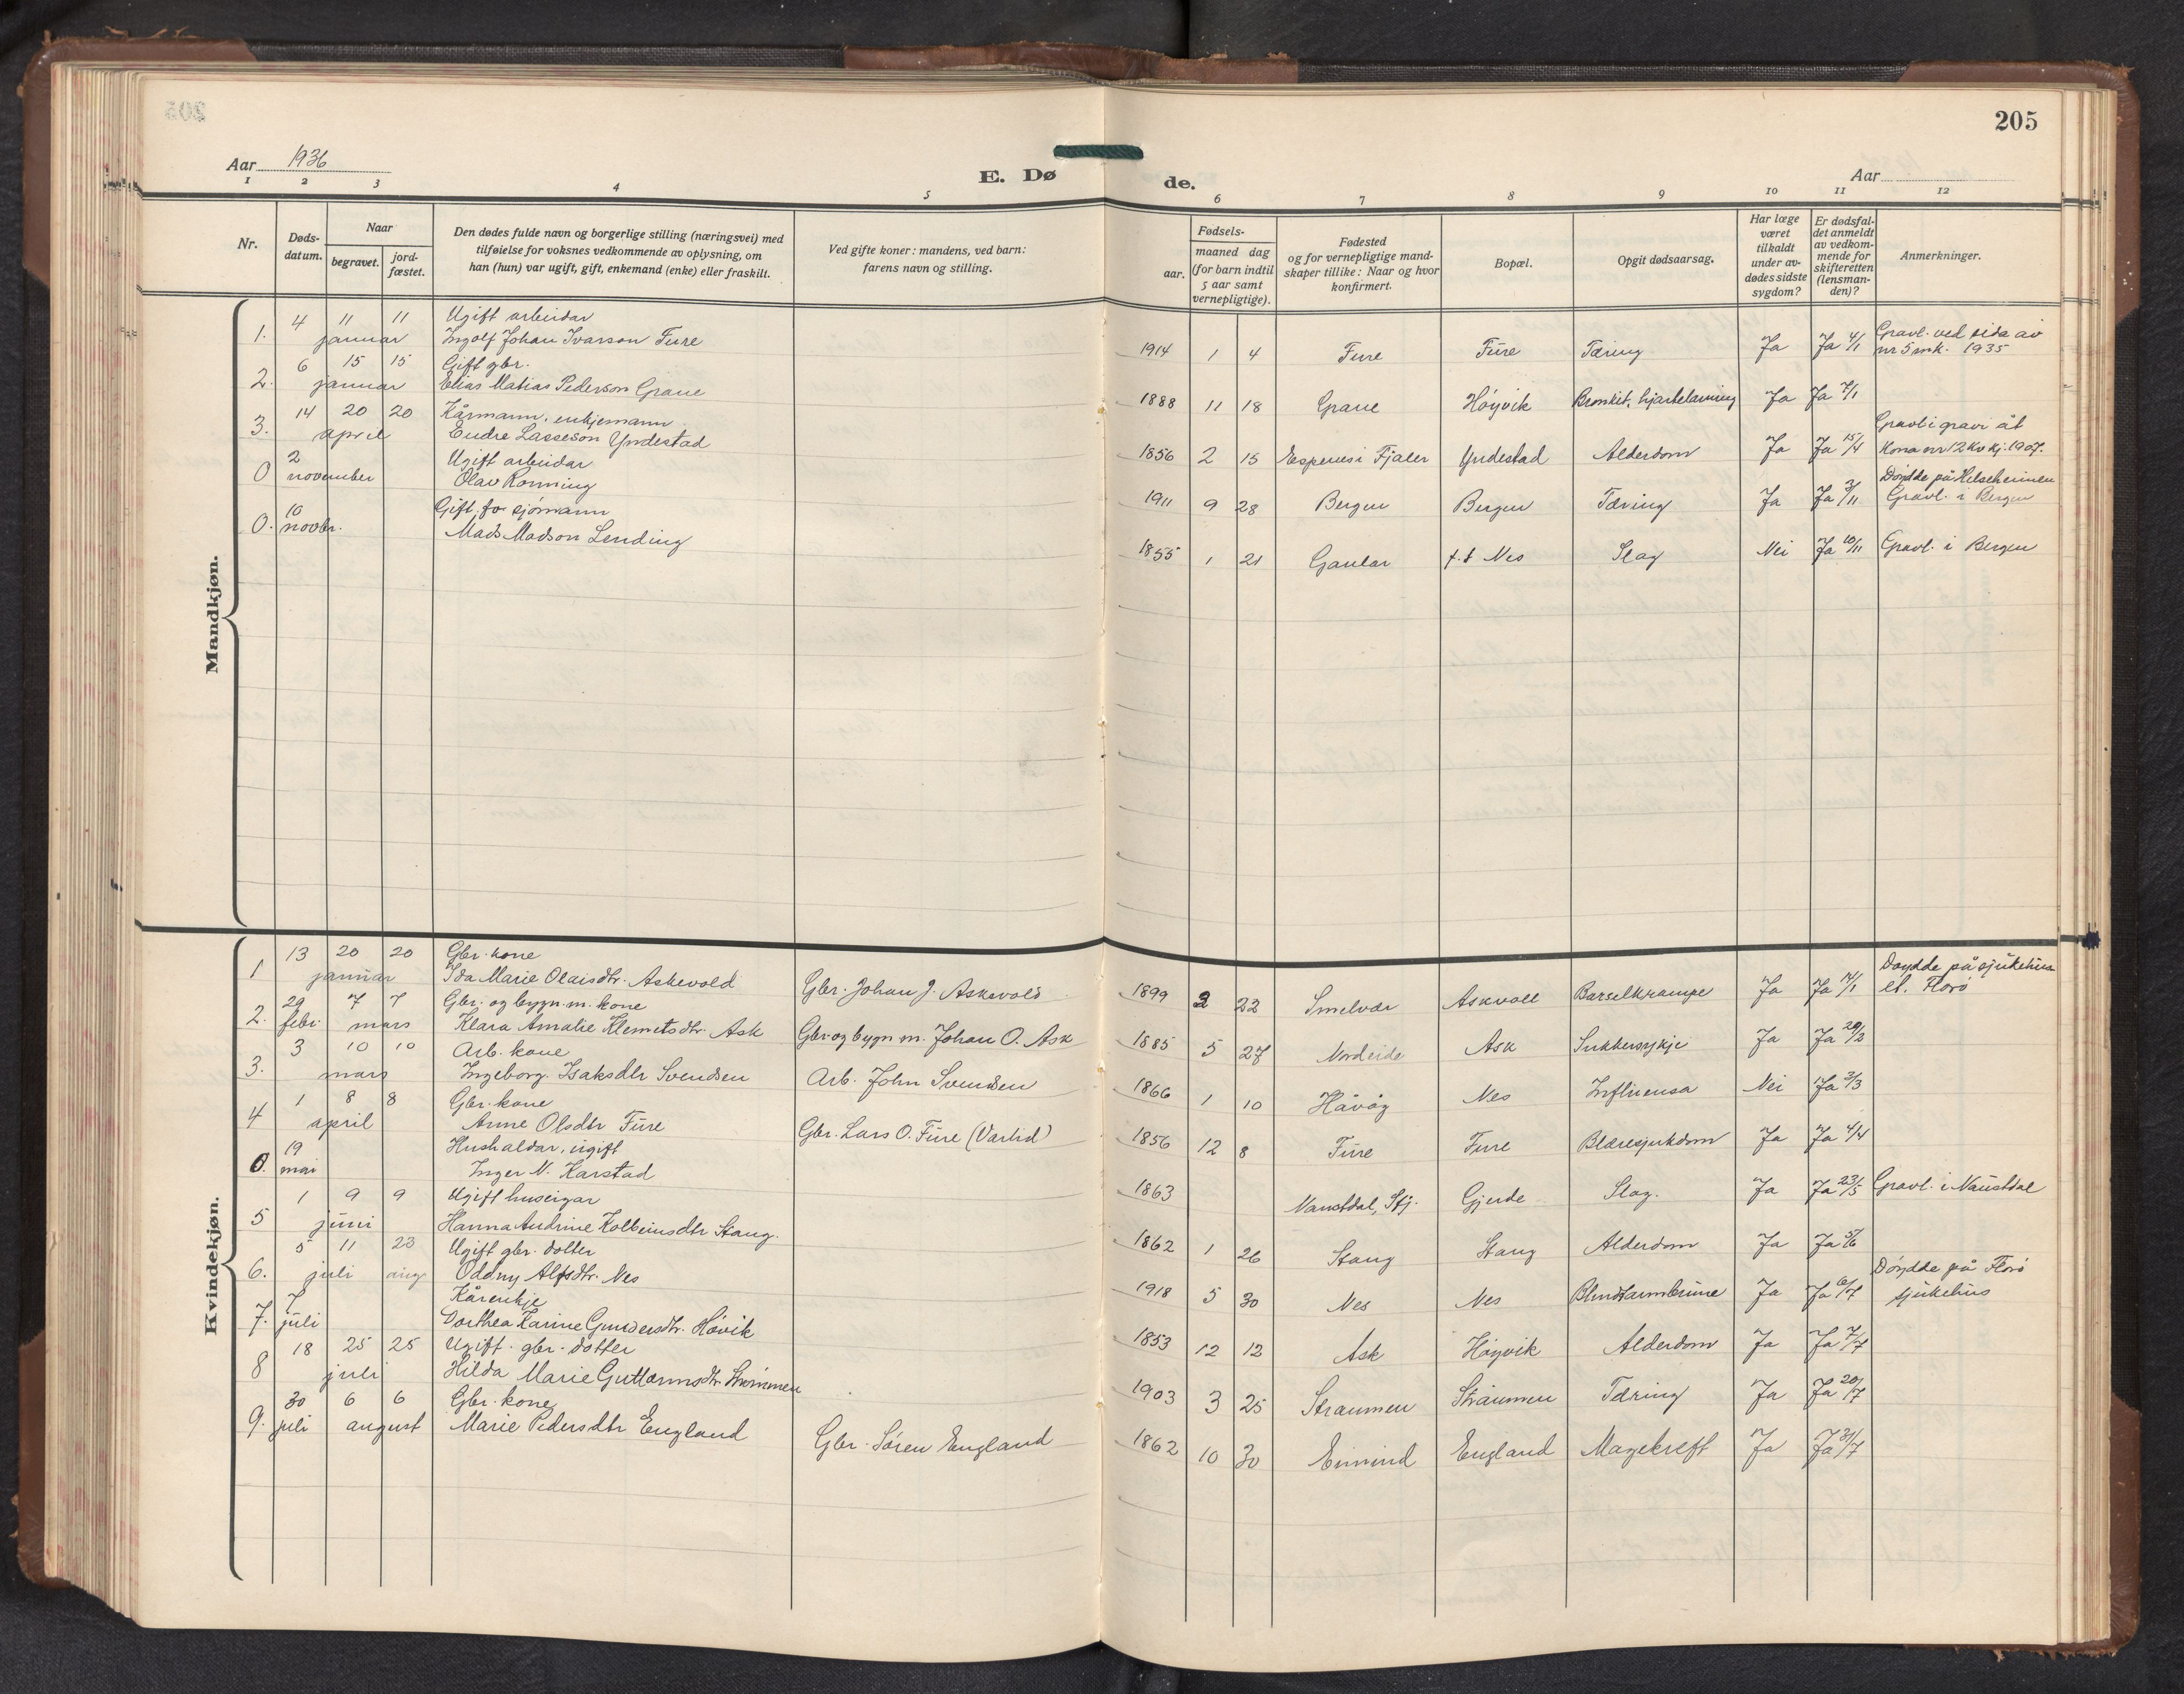 205
Aar 1936
E. Dø
de.
Aar
1 2 3 4 5 6 7 8 9 10 11 12
Nr.
Døds-
datum.
Naar
begravet.
jord-
fæstet.
Den dødes fulde navn og borgerlige stilling (næringsvei) med
tilføielse for voksnes vedkommende av oplysning, om
han (hun) var ugift, gift, enkemand (enke) eller fraskilt.
Ved gifte koner: mandens, ved barn:
farens navn og stilling.
Fødsels-
aar.
maaned dag
(for barn indtil
5 aar samt
vernepligtige).
Fødested
og for vernepligtige mand-
skaper tillike: Naar og hvor
konfirmert.
Bopæl.
Opgit dødsaarsag.
Har læge
været
tilkaldt
under av-
dødes sidste
sygdom?
Er dødsfal-
det anmeldt
av vedkom-
mende for
skifteretten
(lensman-
den)?
Anmerkninger.
Mandkjøn.
4 11 11 Ugift arbeidar
1. januar Ingolf Johan Ivarson Fure 1914 1 4 Fure Fure Tæring Ja Ja 4/1 Gravl. ved sida av
nr 5 mk. 1935
6 15 15 Gift gbr.
2. januar Elias Matias Pederson Grane 1888 11 18 Grane Høyvik Bronkit, Ja Ja 7/1
14 20 20 Kårmann, enkjemann
3. april Endre Lasseson Yndestad 1856 2 15 Espenes i Fjaler Yndestad Alderdom Ja Ja 15/4 Gravl i gravi åt
Kona nr 12 kvkj. 1907.
2 Ugift arbeidar
0 november Olav Rønning 1911 9 28 Bergen Bergen Tæring Ja Ja 3/11 Døydde på Helseheimen
Gravl. i Bergen
10 Gift, fv. sjømann
0. novbr. Mads Madson Lending 1855 1 21 Gaular f.t Nes Slag Nei Ja 10/11 Gravl. i Bergen
Kvindekjøn.
13 20 20 Gbr. kone
1 januar Ida Marie Olaisdtr. Askevold Gbr. Johan J. Askevold 1899 2 22 Smelvær Askvoll Barselkrampe Ja Ja 14/1 Døydde på sjukehus
el. Florø
29 7 7 Gbr. og bygn.m. kone
2. febr. mars Klara Amalie Klemetsdtr. Ask Gbr og bygn m. Johan O. Ask 1885 5 27 Nordeide Ask Sukkersykje Ja Ja 29/2
3 10 10 Arb. kone
3. mars Ingeborg Isaksdtr Svendsen Arb. John Svendsen 1866 1 10 Håvåg Nes Influensa Nei Ja 3/3
1 8 8 Gbr. kone
4 april Anne Olsdtr Fure Gbr. Lars O. Fure (Varlid) 1856 12 8 Fure Fure Blæresjukdom Ja Ja 4/4
19 Hushaldar, ugift
0. mai Inger N. Karstad 1863 Naustdal, Sfj. Gjerde Slag. Ja Ja 23/5 Gravl. i Naustdal
1 9 9 Ugift huseigar
5 juni Hanna Andrine Kolbeinsdtr Stang. 1862 1 26 Stang Stang Alderdom Ja Ja 5/6
5 11 23 Ugift gbr. dotter
6. juli aug Oddny Alfsdtr. Nes 1918 5 30 Nes Nes Blindtarmbrune Ja Ja 6/7 Døydde på Florø
sjukehus
7 Kårenkje
7. juli Dorthea Karine Gundersdtr. Høvik 1853 12 12 Ask Høyvik Alderdom Ja Ja 7/7
18 25 25 Ugift. gbr. dotter
8 juli Hilda Marie Guttormsdtr Strømmen 1903 3 25 Straumen Straumen Tæring Ja Ja 20/7
30 6 6 Gbr. kone
9. juli august Marie Pedersdtr England Gbr. Søren England 1862 10 30 Eimind England Magekreft Ja Ja 31/7